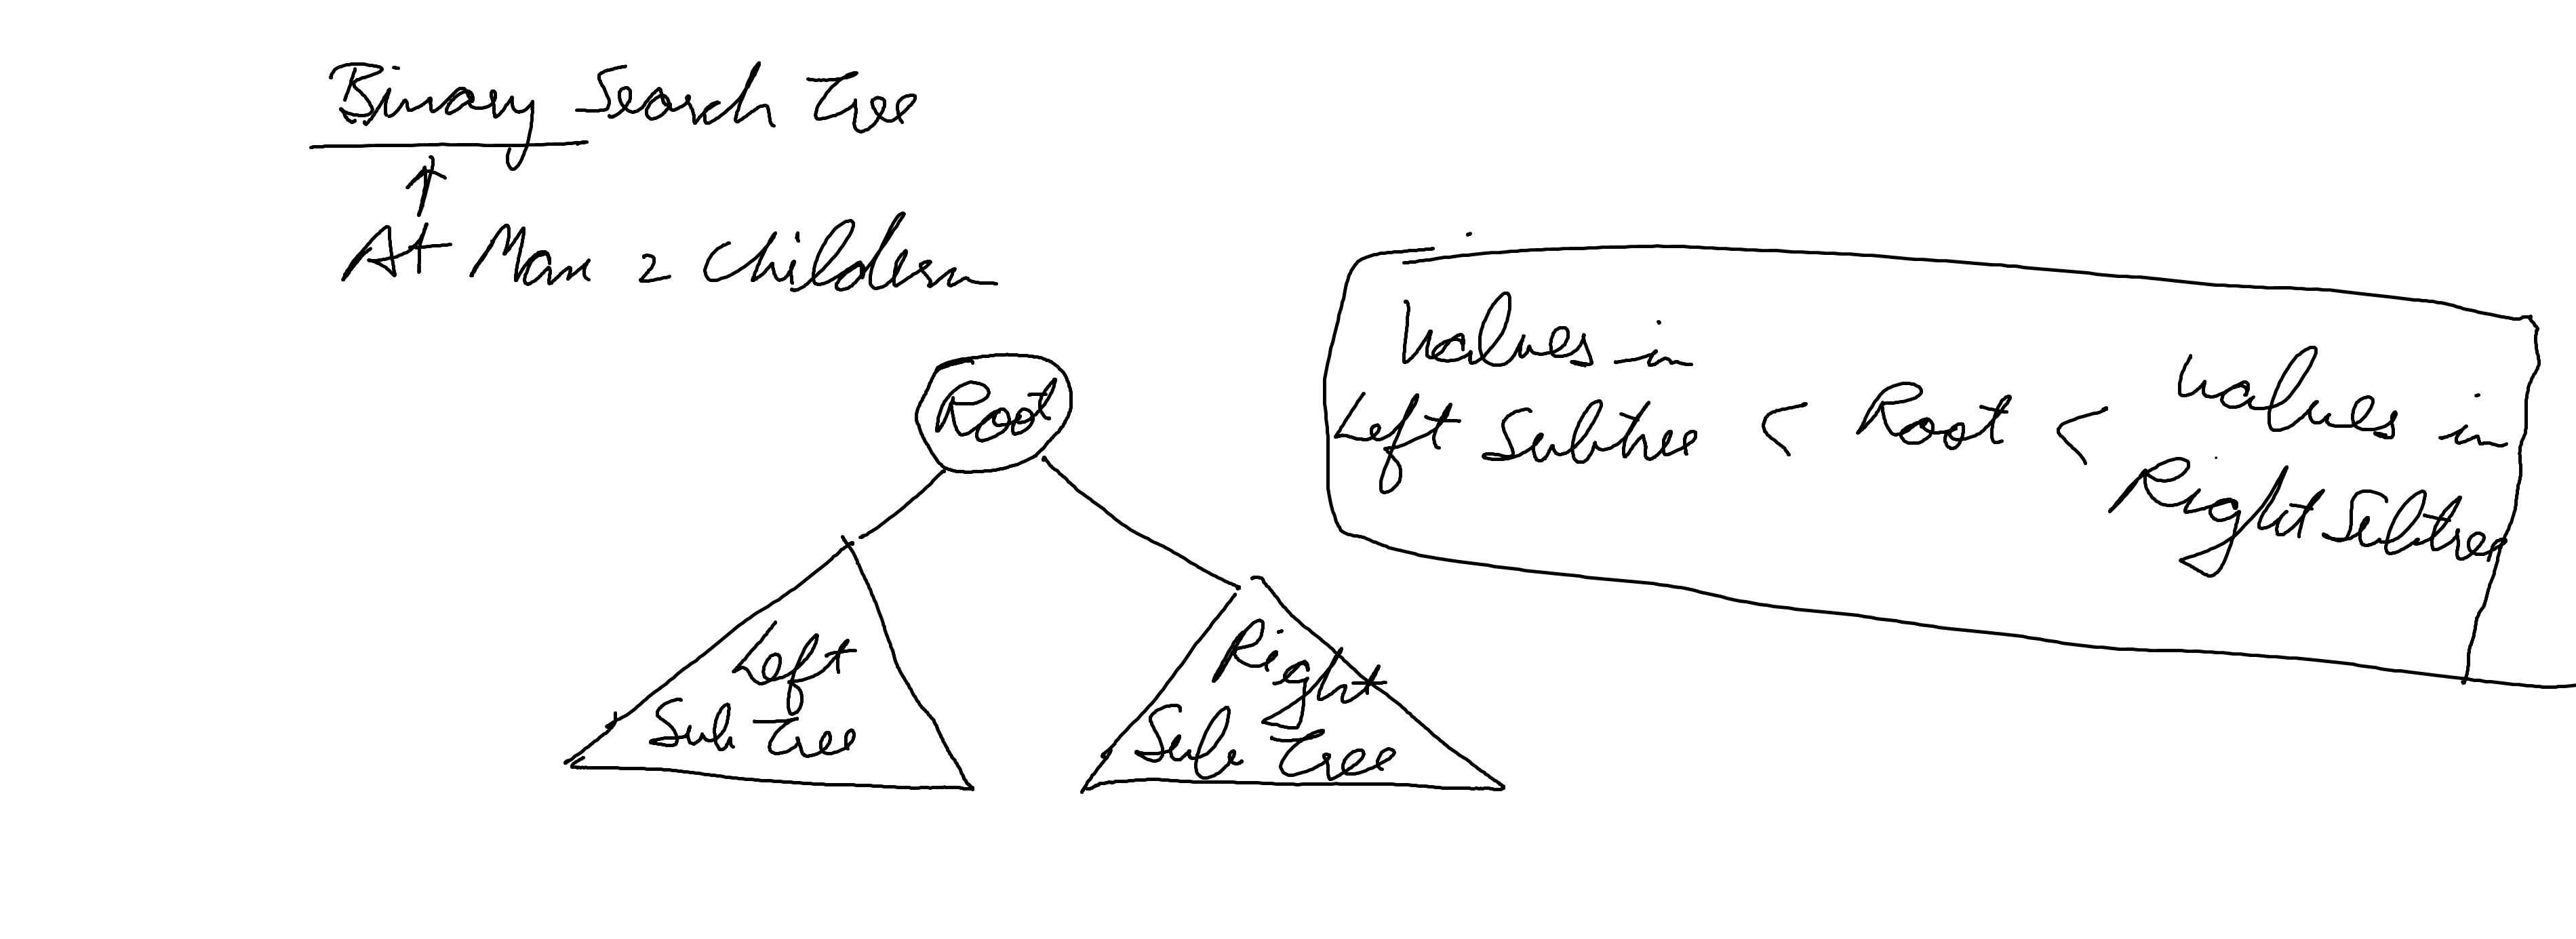 Binary Search Tree
↑
At Max 2 Children
Root
Left
Sub Tree
Right
Sub Tree
Values in
Left Subtree < Root < Values in
Right Subtree